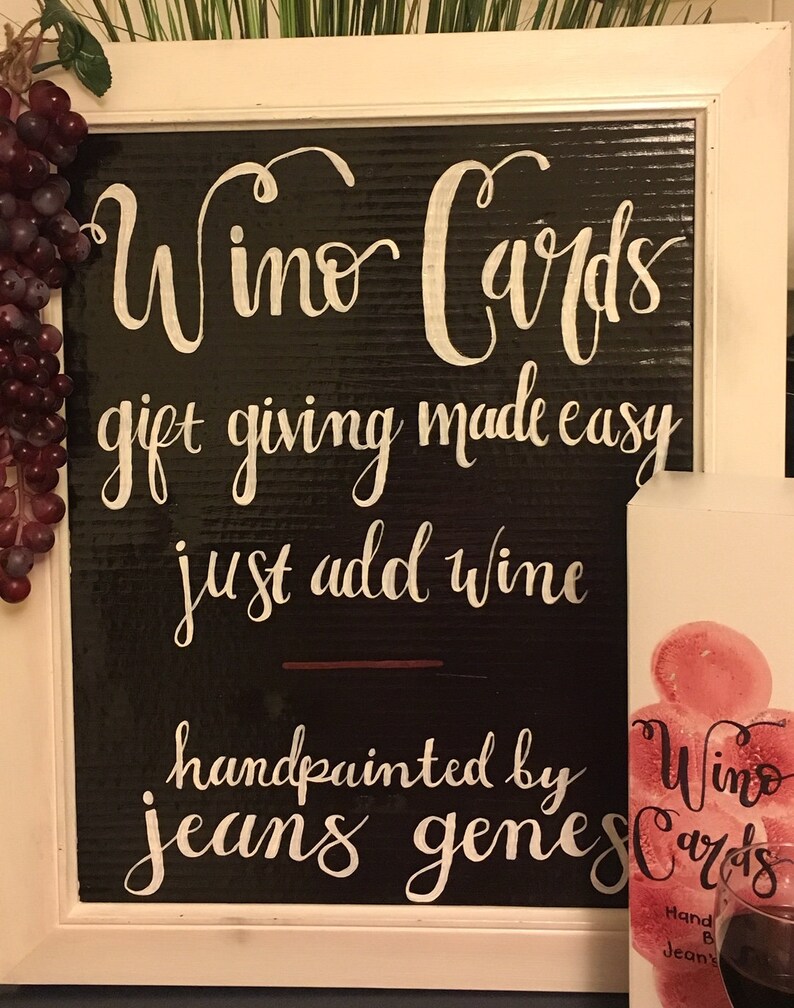 Wino Cards
gift giving made easy
just add wine
handpainted by
jeans genes
Wino
Cards
Hand
B
Jean's